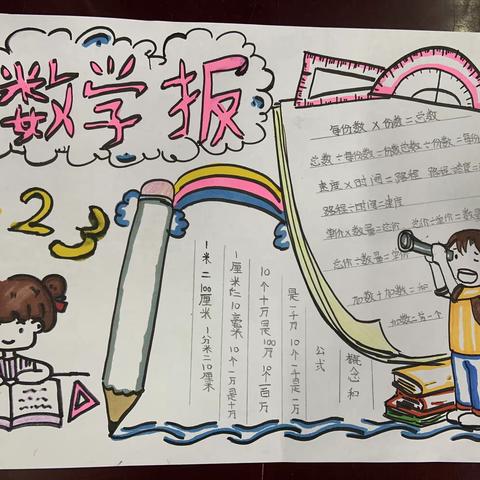 数学报
1 2 3
每份数×份数=总数
总数÷每份数=份数 总数÷份数=每份
速度×时间=路程 路程÷速度=
路程÷时间=速度
单价×数量=总价 总价÷单价=数量
总价÷数量=单价
加数+加数=和
概念和
公式
是一千万 10个一千万是一
10个十万是100万 10个一百万
1厘米=10毫米 10个一万是十万
1米=100厘米 1分米=10厘米